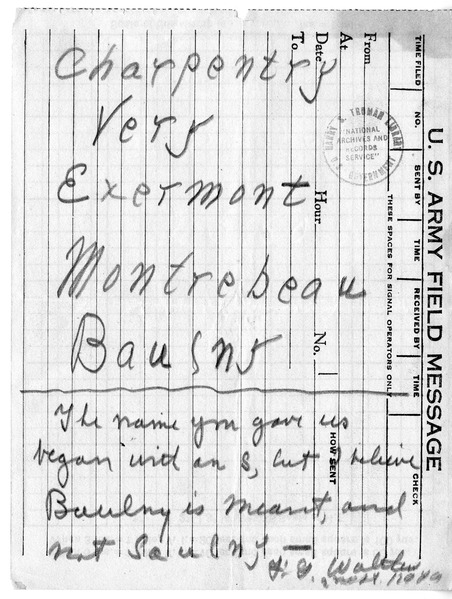 Charpentry
Very
Exermont
Montrebeau
Baulny
The name you gave us
began with an S, but I believe
Baulny is meant, and
not Saulny —
U. S. ARMY FIELD MESSAGE
TIME FILED NO. SENT BY TIME RECEIVED BY TIME CHECK
THESE SPACES FOR SIGNAL OPERATORS ONLY
From
At
Date Hour No.
To
HOW SENT
HARRY S. TRUMAN LIBRARY
"NATIONAL
ARCHIVES AND
RECORDS
SERVICE"
U.S. GOVERNMENT